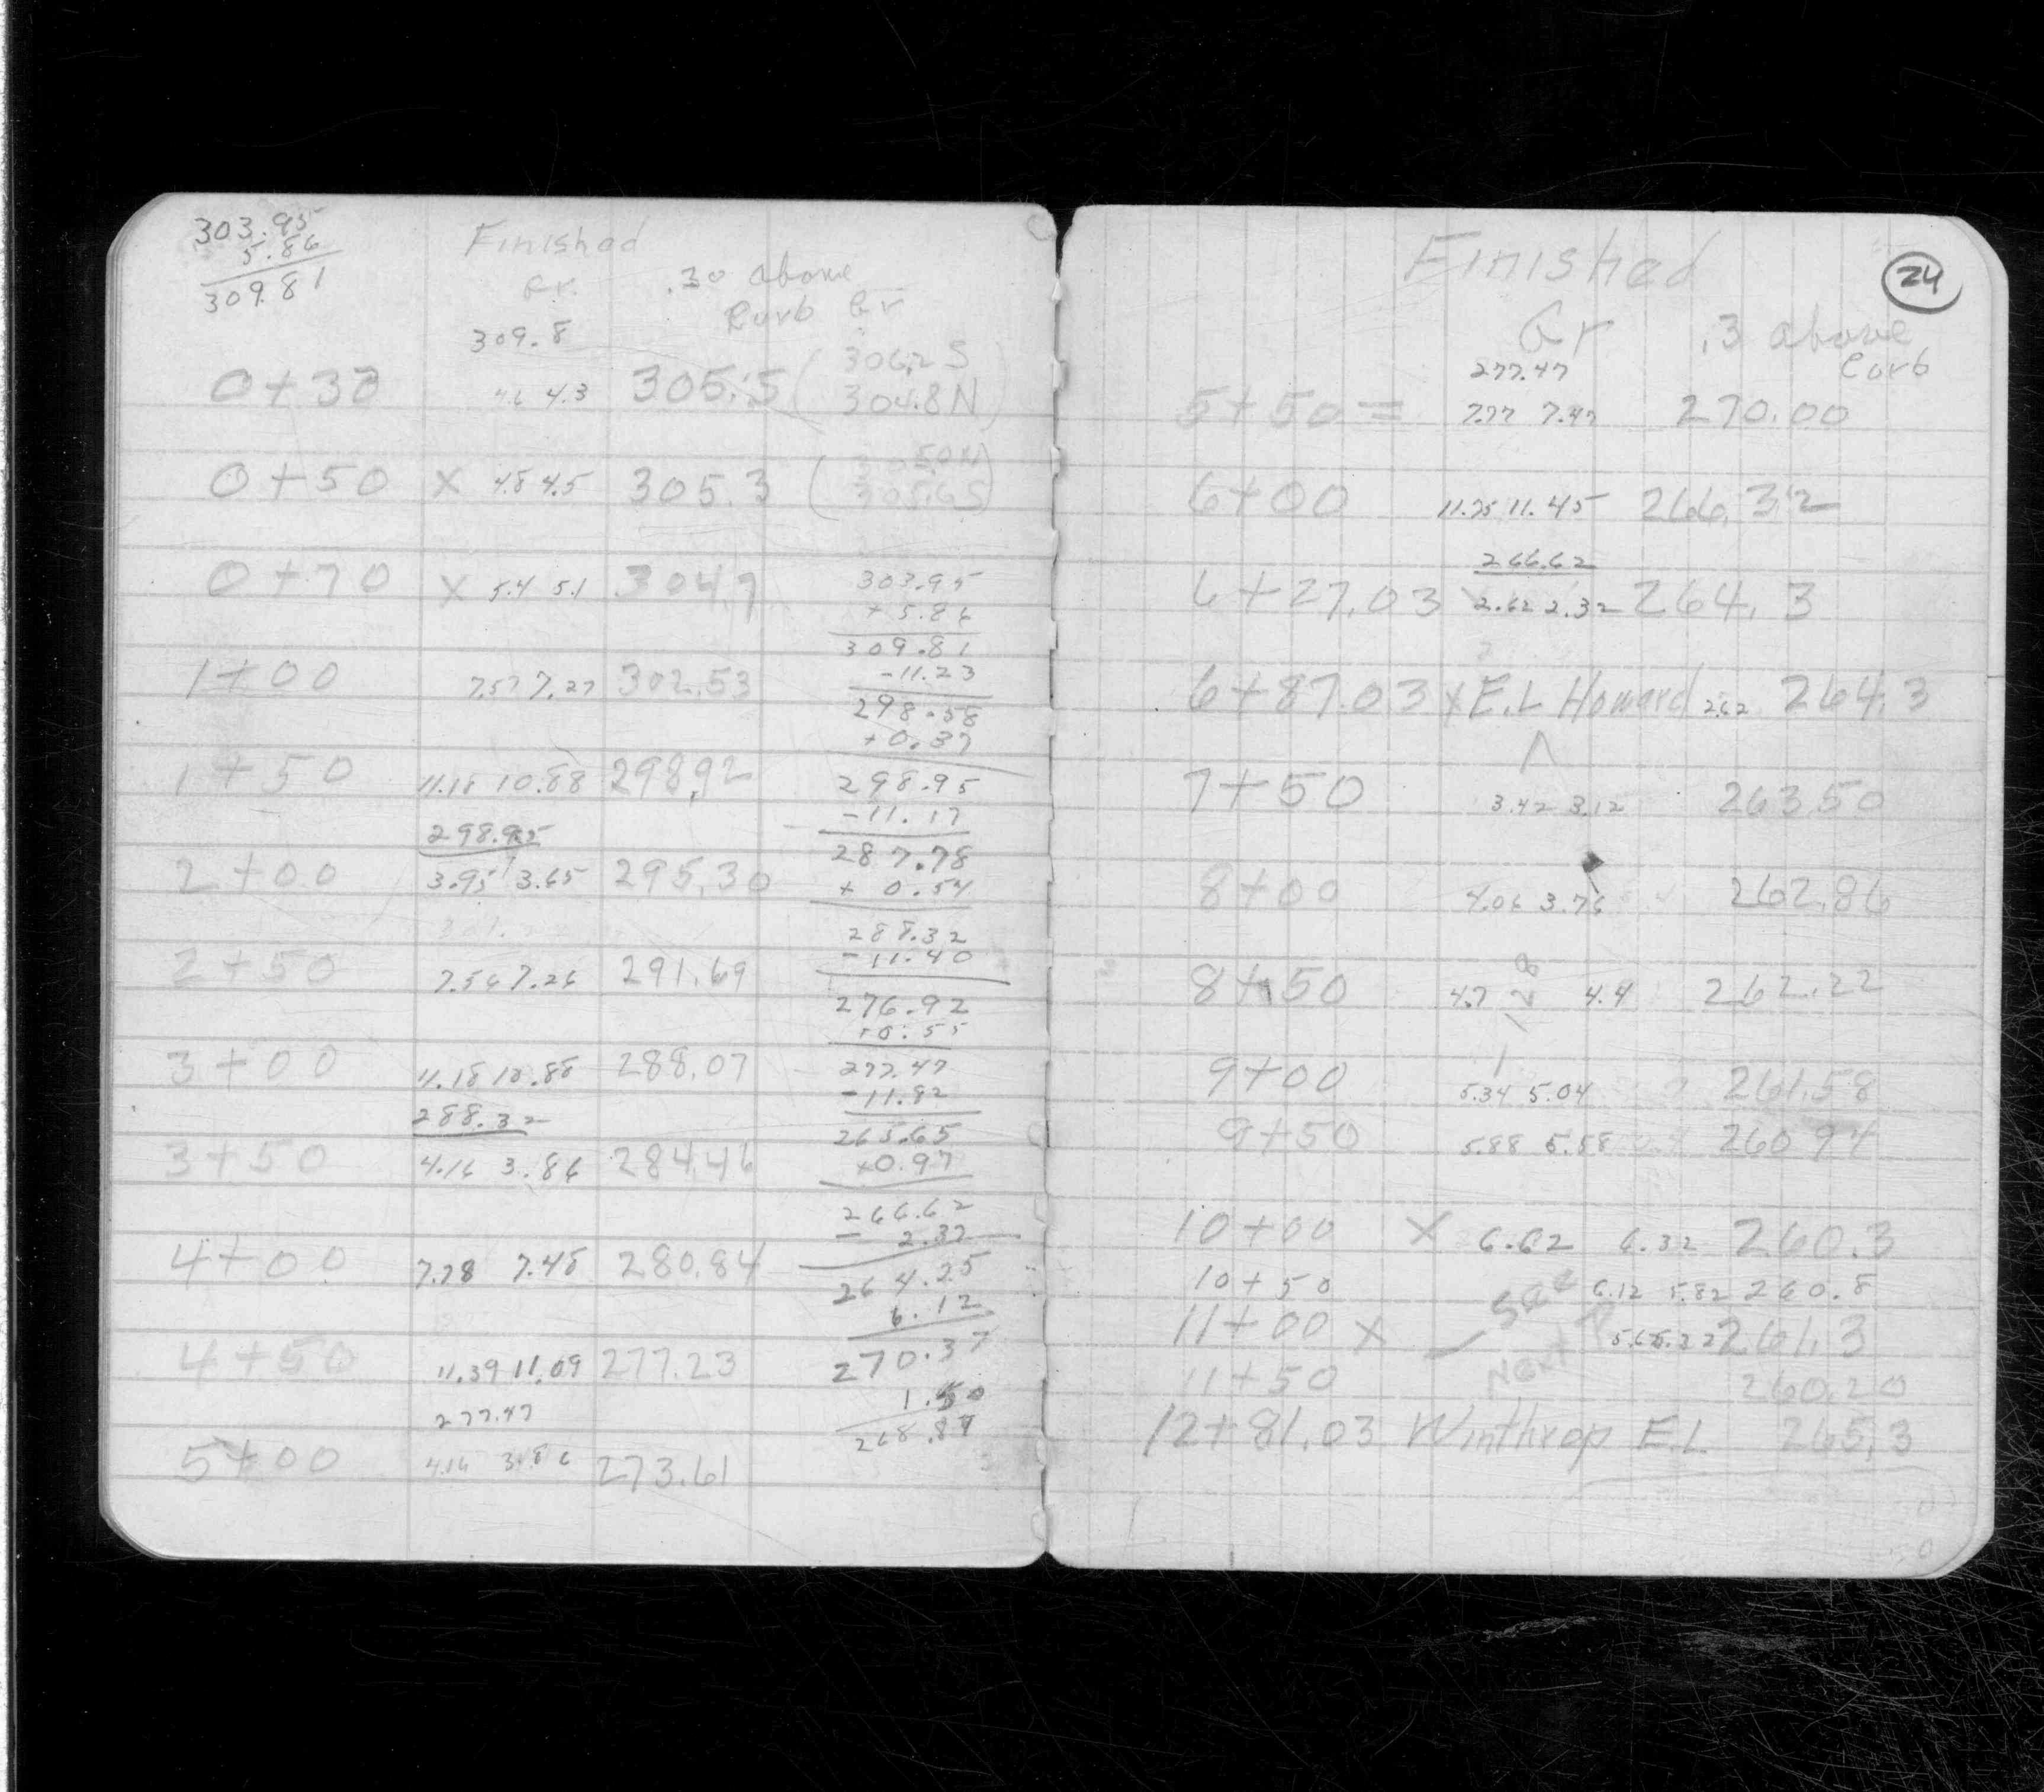 303.95
5.86
309.81
Finished
Gr. .30 above
Curb Gr
309.8
0+30 4.6 4.3 305.5 ( 306.2 S
304.8 N )
0+50 X 4.8 4.5 305.3 (
305.6 S )
0+70 X 5.4 5.1 304.7 303.95
+ 5.86
309.81
1+00 7.57 7.27 302.53 -11.23
298.58
+0.37
1+50 11.18 10.88 298.92 298.95
-11.17
298.95 287.78
2+00 3.95 3.65 295.30 + 0.54
288.32
2+50 7.56 7.26 291.69 -11.40
276.92
+0.55
3+00 11.18 10.88 288.07 277.47
-11.82
288.32 265.65
3+50 4.16 3.86 284.46 +0.97
266.62
- 2.37
4+00 7.78 7.48 280.84 264.25
6.12
4+50 11.39 11.09 277.23 270.37
1.50
277.47 268.87
5+00 4.16 3.86 273.61
24
Finished
Gr .3 above
Curb
277.47
5+50 = 7.77 7.47 270.00
6+00 11.75 11.45 266.32
266.62
6+27.03 2.62 2.32 264.3
6+87.03 X E.L Howard 2.62 264.3
7+50 3.42 3.12 263.50
8+00 4.06 3.76 262.86
8+50 4.7 4.4 262.22
1.28
9+00 5.34 5.04 261.58
9+50 5.88 5.58 260.94
10+00 X 6.62 6.32 260.3
10+50 6.12 5.82 260.8
11+00 X See 5.62 5.32 261.3
11+50 Next P 260.20
12+81.03 Winthrop E.L 265.3